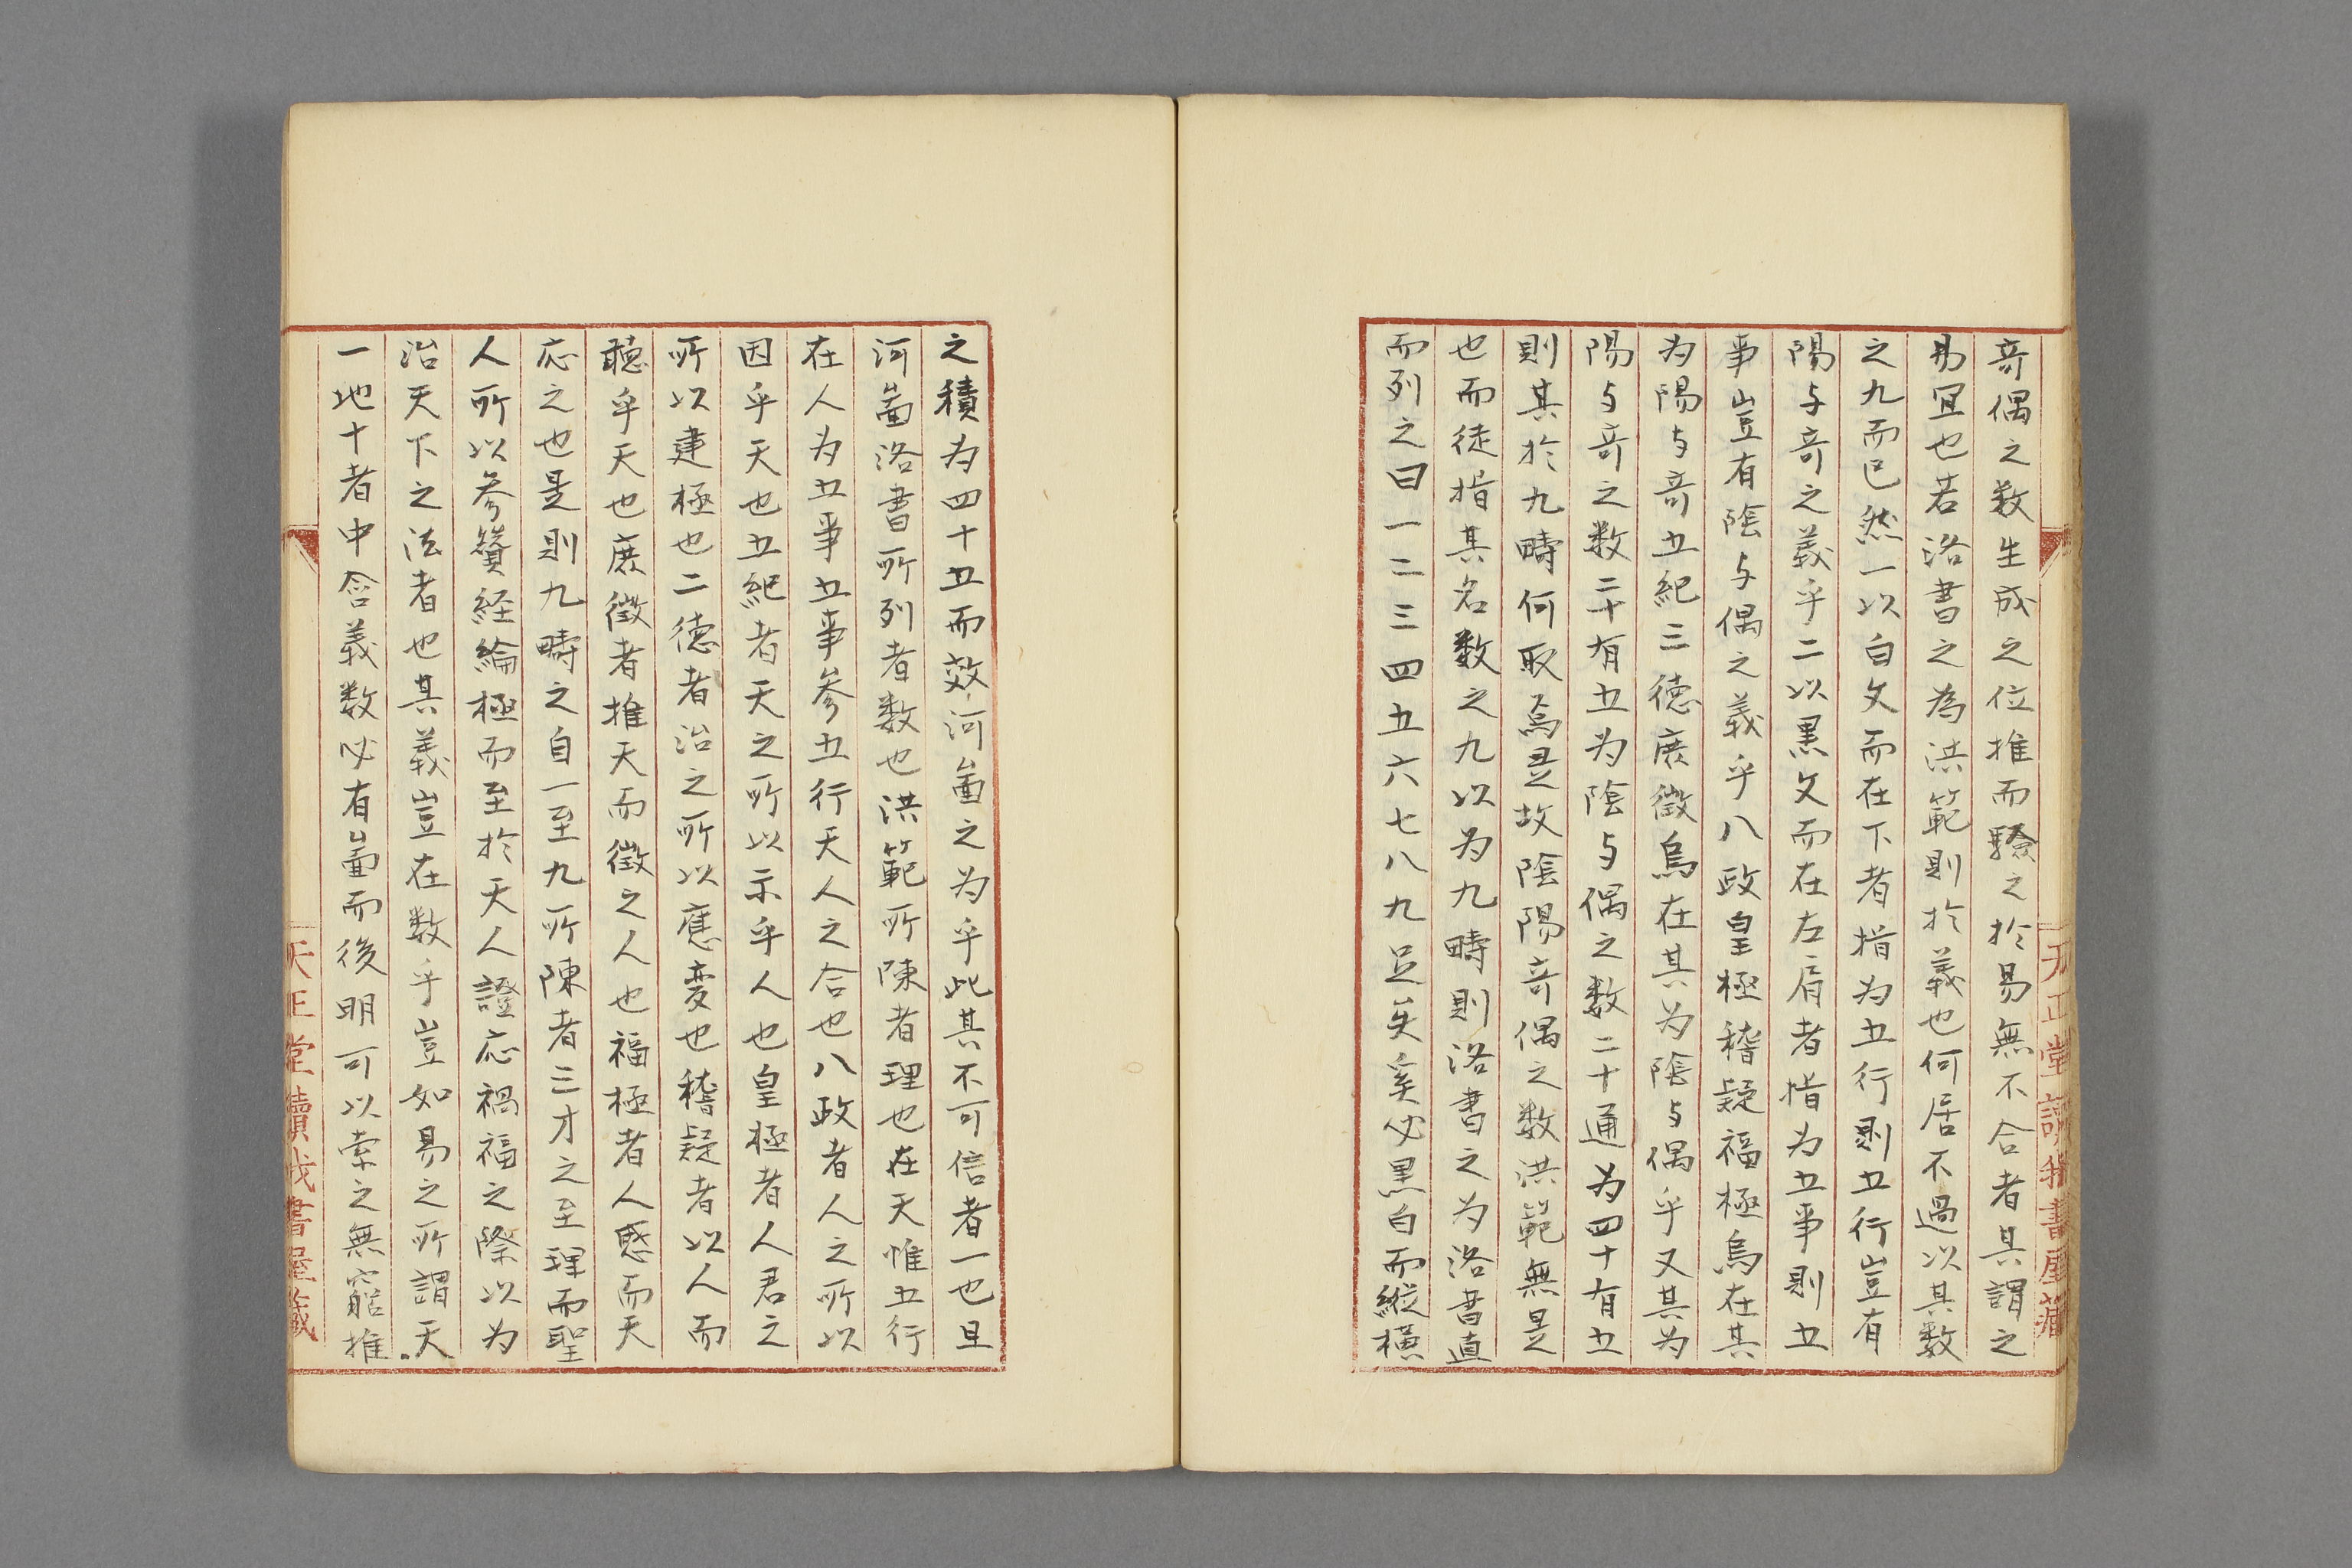 奇偶之数生成之位推而驗之於易無不合者其謂之
易宜也若洛書之為洪範則於義也何居不過以其数
之九而已然一以白文而在下者指为五行則五行豈有
陽与奇之義乎二以黒文而在左肩者指为五事則五
事豈有陰与偶之義乎八政皇極稽疑福極烏在其
为陽与奇五紀三徳庶徴烏在其为陰与偶乎又其为
陽与奇之数二十有五为陰与偶之数二十通为四十有五
則其於九疇何取焉是故陰陽奇偶之数洪範無是
也而徒指其名数之九以为九疇則洛書之为洛書直
而列之曰一二三四五六七八九足矣奚必黒白而縦横
天正堂讀我書屋藏
之積为四十五而效河啚之为乎此其不可信者一也且
河啚洛書所列者数也洪範所陳者理也在天惟五行
在人为五事五事参五行天人之合也八政者人之所以
因乎天也五紀者天之所以示乎人也皇極者人君之
所以建極也二徳者治之所以應変也稽疑者以人而
聴乎天也庶徴者推天而徴之人也福極者人感而天
応之也是則九疇之自一至九所陳者三才之至理而聖
人所以参贊経綸極而至於天人證応禍福之際以为
治天下之法者也其義豈在数乎豈如易之所謂天
一地十者中含義数必有啚而後明可以索之無窮推
天正堂讀我書屋藏